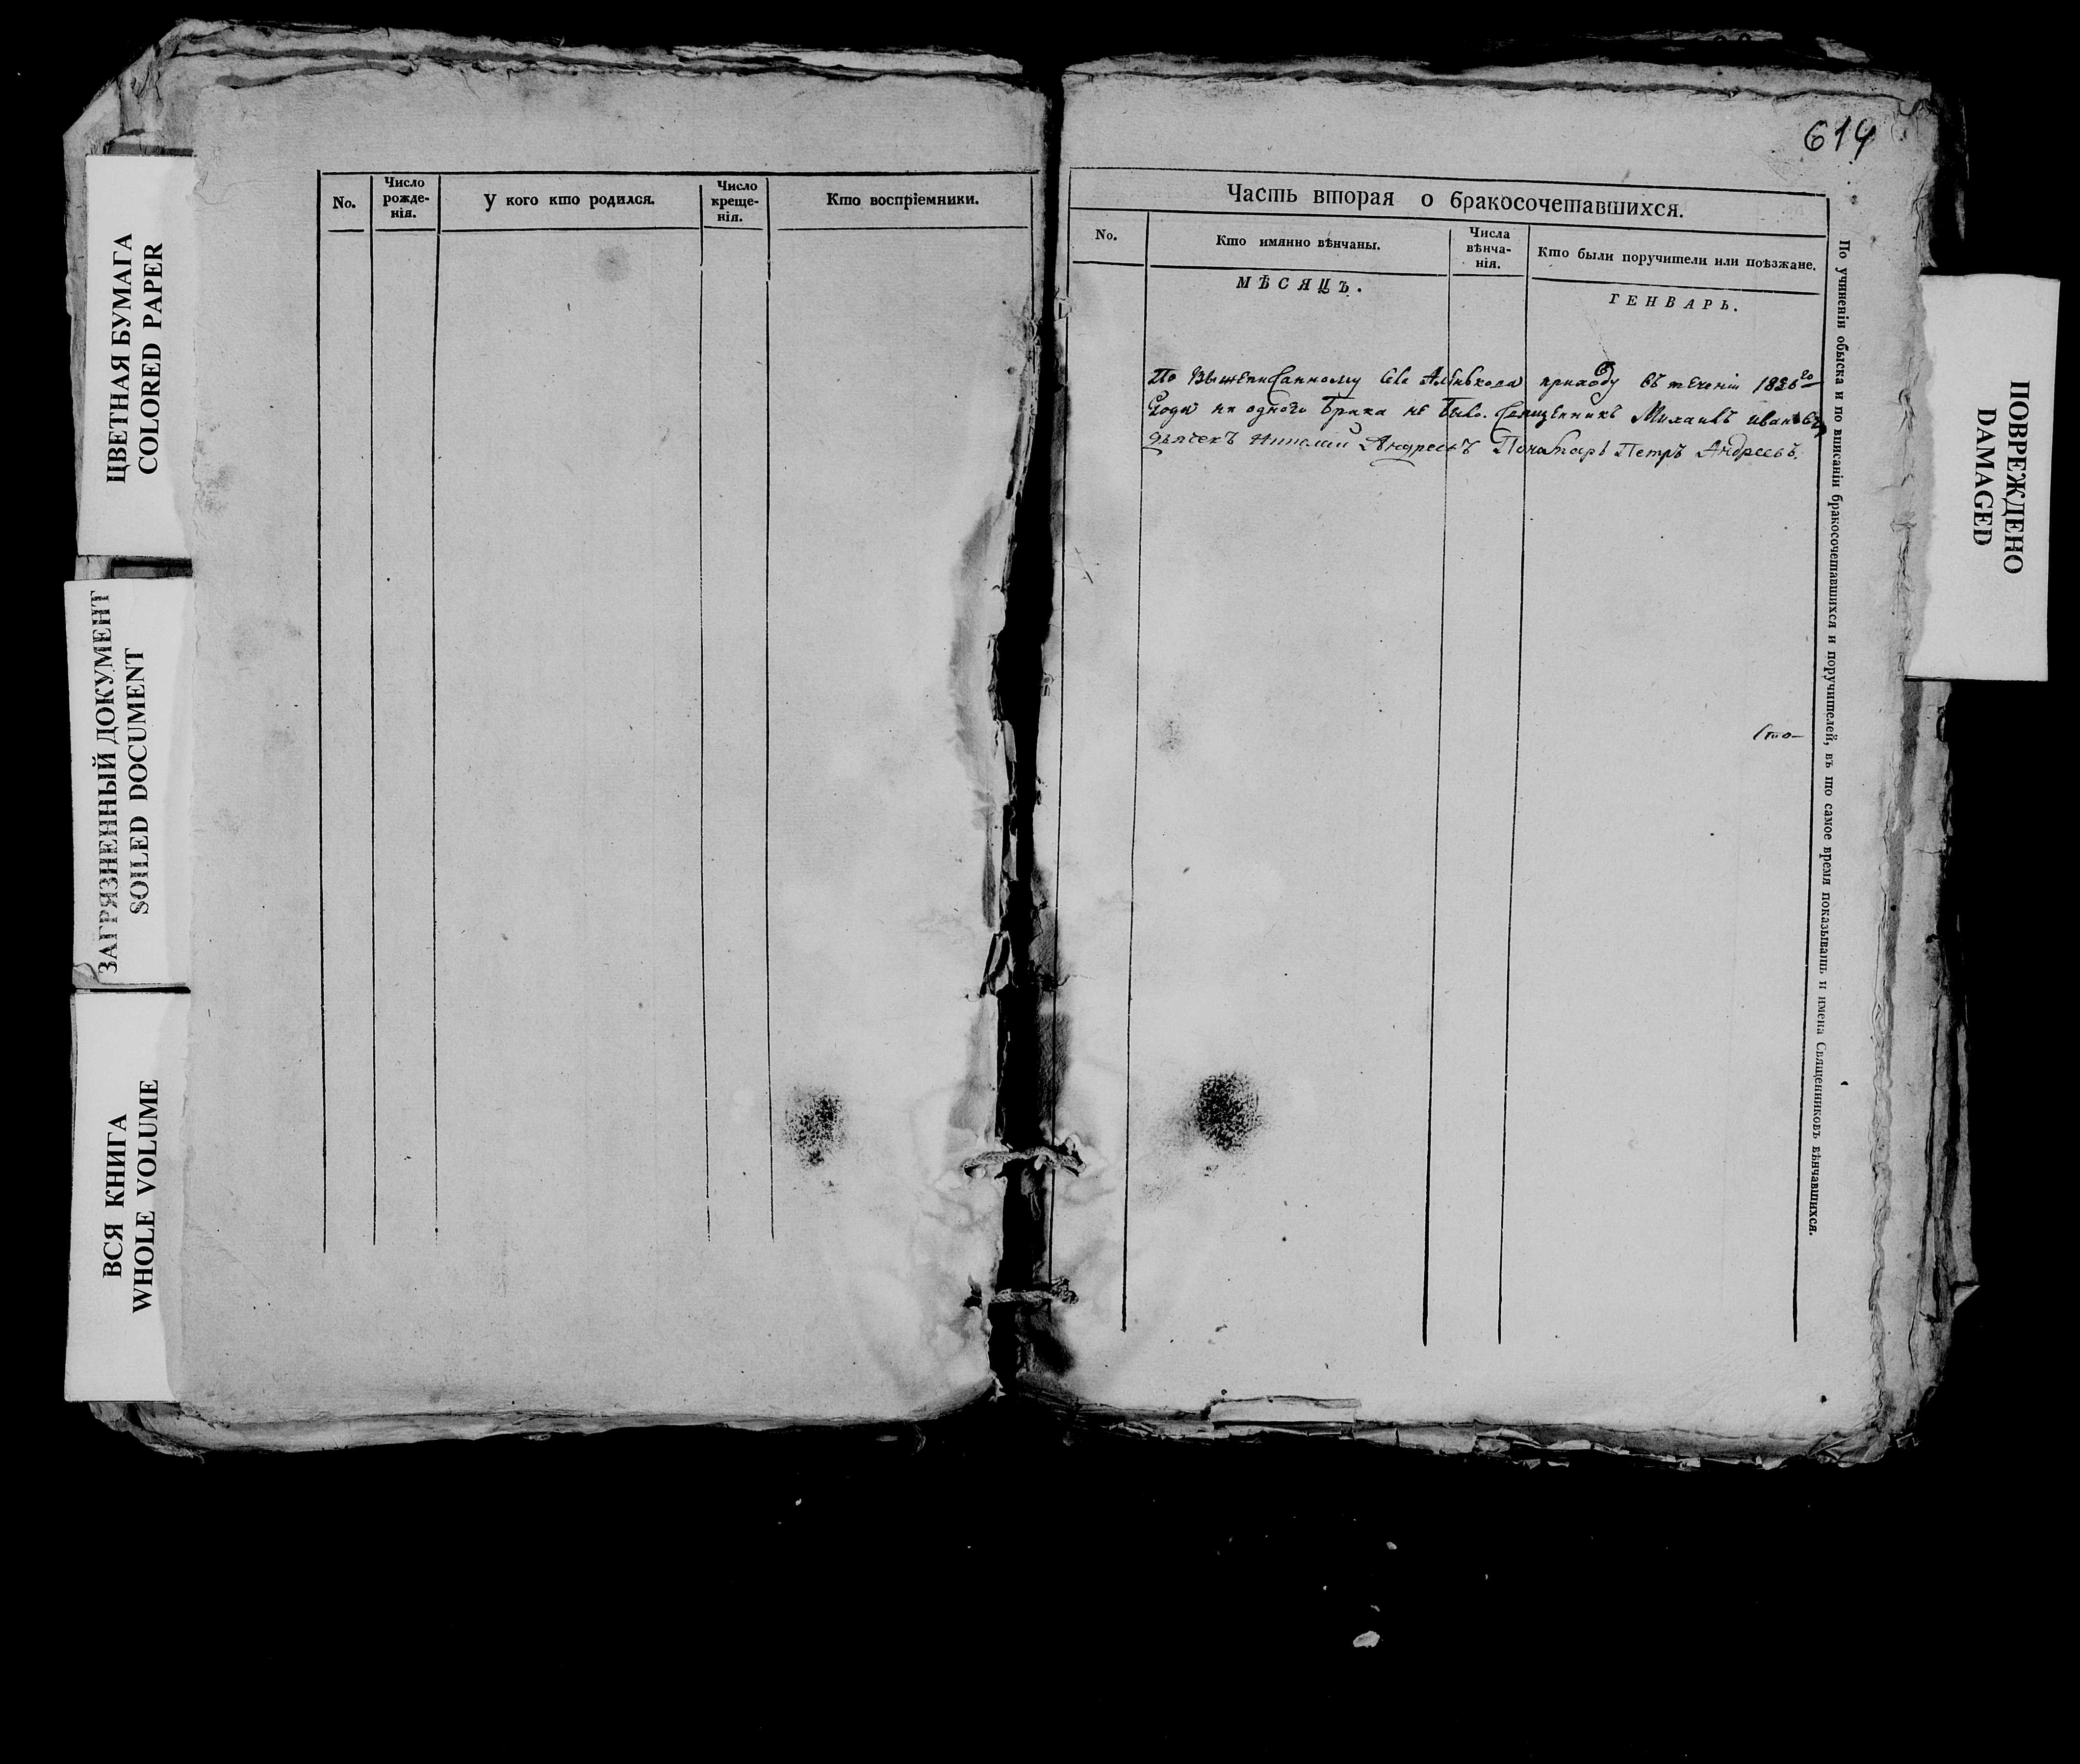 ЦВЕТНАЯ БУМАГА
COLORED PAPER
ЗАГРЯЗНЕННЫЙ ДОКУМЕНТ
SOILED DOCUMENT
ВСЯ КНИГА
WHOLE VOLUME
No.
Число рожде-нія.
У кого кто родился.
Число креще-нія.
Кто воспріемники.
614
Часть вторая о бракосочетавшихся.
No.
Кто имянно вѣнчаны.
Числа вѣнча-нія.
Кто были поручители или поѣзжане.
МѢСЯЦЪ.
ГЕНВАРЬ.
По вышеписанному приходу въ теченіи
года ни одного брака не было. Священникъ Михаилъ Ивановъ
дьячекъ Андреевъ Петръ Андреевъ.
Сто-
По учиненіи обыска и по вписаніи бракосочетавшихся и поручителей, въ то самое время показывать и имена Священниковъ вѣнчавшихся.
ПОВРЕЖДЕНО
DAMAGED